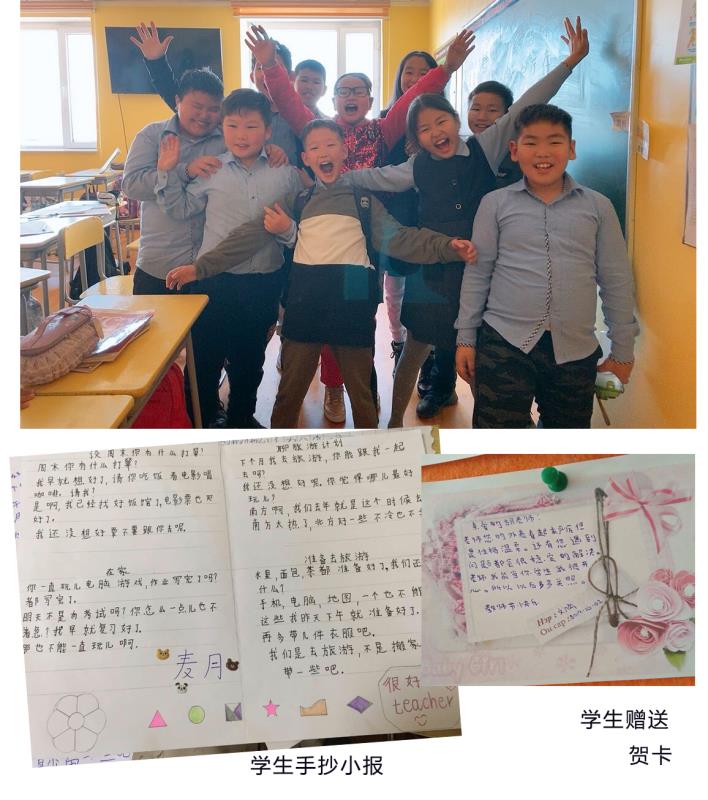 说 周末 你 有 什么 打算?
周末 你 有 什么 打算?
我 早就 想好 了, 请 你 吃 饭 看 电影 喝
咖啡, 请 我?
是 啊, 我 已经 找 好 饭馆 了, 电影票 也 买
好了.
我 还 没 想 好 要 不 要 跟 你 去 呢.
在 家
你 一直 玩儿 电脑 游戏, 作业 写 完 了 吗?
都 写 完 了.
明天 不 是 有 考试 吗? 你 怎么 一点儿 也 不
着急? 我 早 就 复习 好 了.
也 不 能 一直 玩儿 啊.
麦月
聊 旅游 计划
下 个 月 我 去 旅游, 你 能 跟 我 一起
去 吗?
我 还 没 想 好 呢, 你 觉得 哪儿 最 好
玩儿?
南方 啊, 我们 去年 就 是 这 个 时候 去
南方 太 热 了, 北方 好 一些 不 冷 也 不
准备 去 旅游
水果, 面包, 茶 都 准备 好了. 我们 还
什么?
手机, 电脑, 地图, 一 个 也 不 能
这些 我 昨天 下午 就 准备 好 了.
再 多 带 几 件 衣服 吧.
我们 是 去 旅游, 不 是 搬家
带 一些 吧.
很好
teacher
老师您的外表看起来严厉但
是性格温柔。还有您遇到
问题都会很稳定的解决。
老师我能当你学生我很开
心。所以以后多多关照。
教师节快乐
Baby Girl
学生手抄小报
学生赠送
贺卡